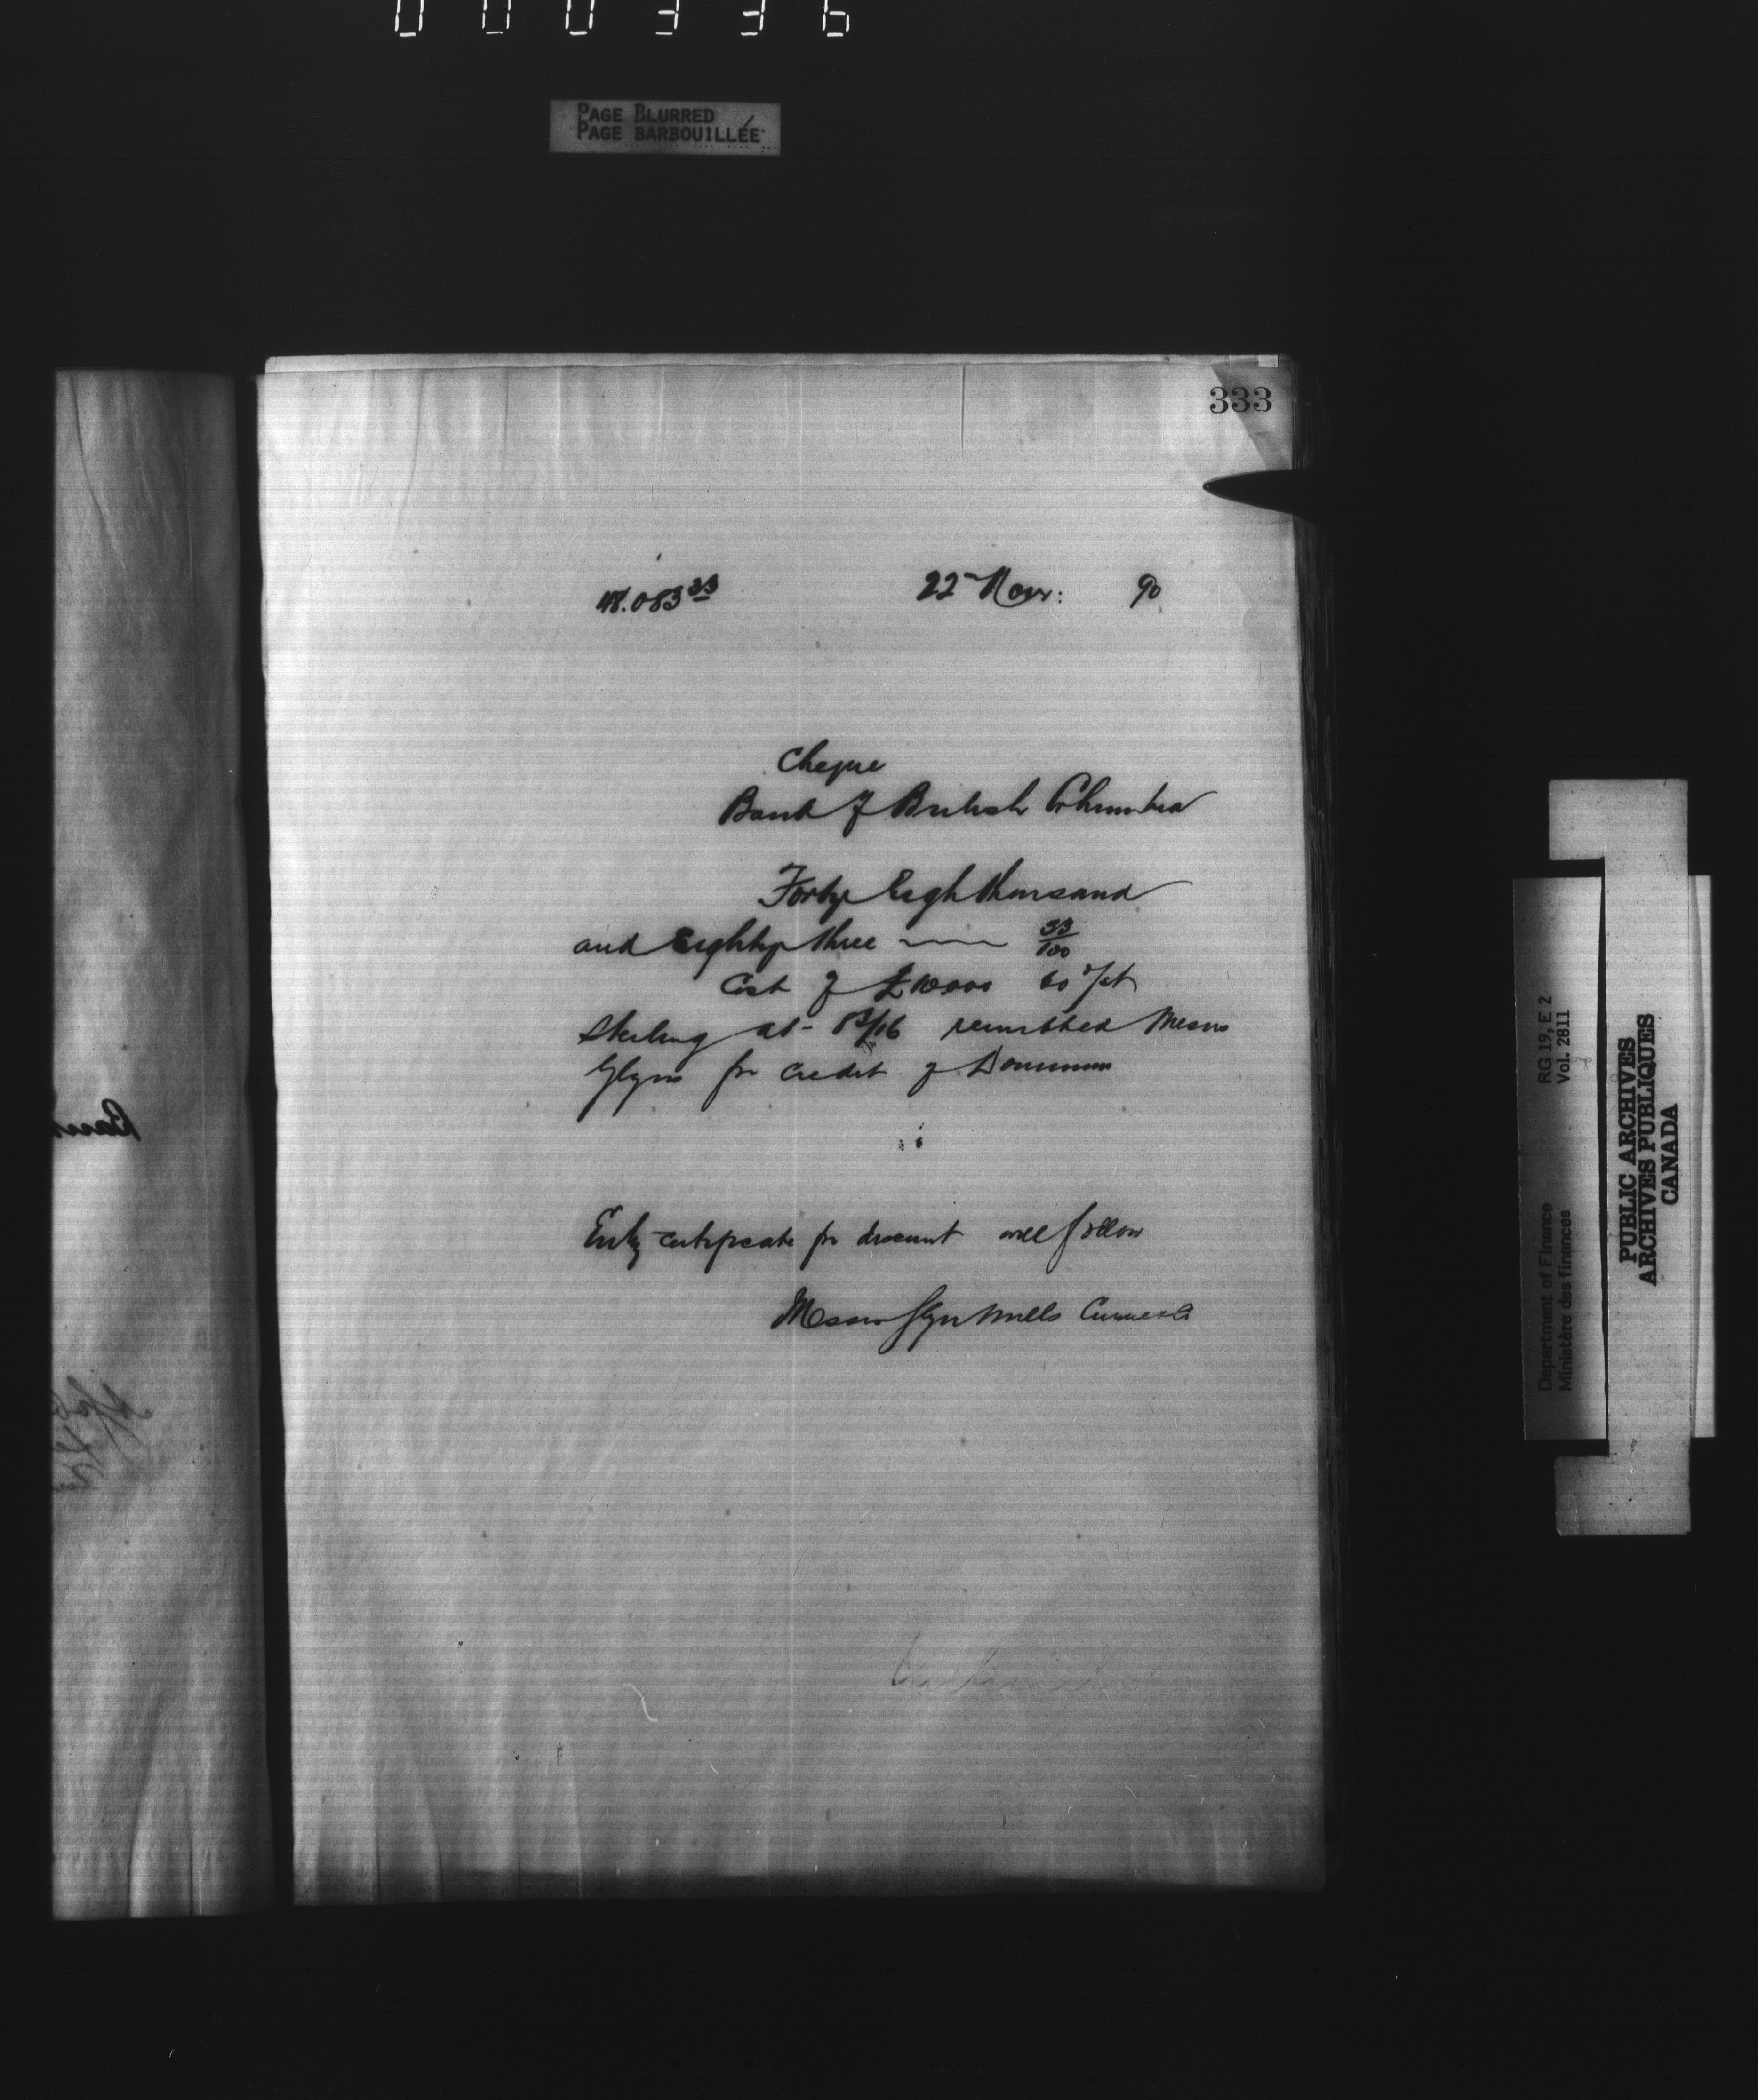 000336
PAGE BLURRED
PAGE BARBOUILLÉE
333
48.083 33 22 Nov: 90
Cheque
Bank of British Columbia
Forty Eight thousand
and Eighty three 33/100
Cost of £10.000 60 d/st
Sterling at 8 3/16 remitted Messrs
Glyns for credit of Dominion
Entry certificate for discount will follow
Messrs Glyn Mills Currie & Co
RG 19, E 2
Vol. 2811
Department of Finance
Ministère des finances
PUBLIC ARCHIVES
ARCHIVES PUBLIQUES
CANADA